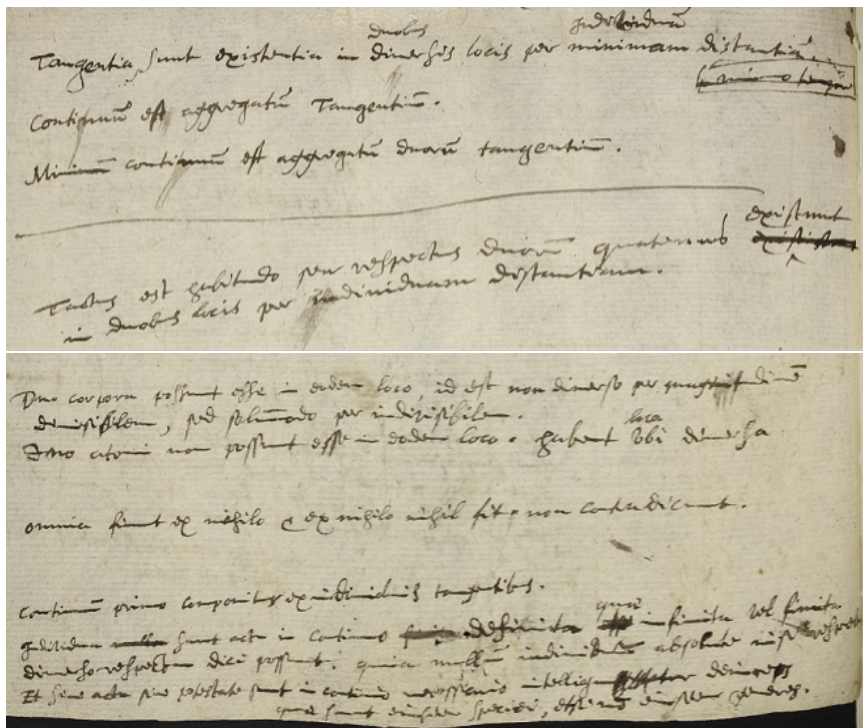 duobus individuã
Tangentia sunt existentia in diversis locis per minimam distantiã.
Continuũ est aggregatũ Tangentiũ.
Minimũ continuũ est aggregatũ duorũ tangentiũ.
existunt
Tactus est habitudo seu respectus duorũ quatenus
in duobus locis per individuam distantiam.
Duo corpora possunt esse in eodem loco, id est non diverso per magnitudinẽ
divisibilem, sed solũmodo per indivisibilem.
loca
Duo atomi non possunt esse in eodem loco. habent ubi diversa
omnia fiunt ex nihilo & ex nihilo nihil fit non contradicunt.
Continuũ primo componitur ex individuis tangentibus.
quae
individua sunt actu in continuo definita infinita vel finita
diverso respectu dici possunt. quia nullũ absolute
Et sive actu sive potestate sunt in continuo necessario deinceps
quae sunt eiusdem speciei, eiusdem generis.